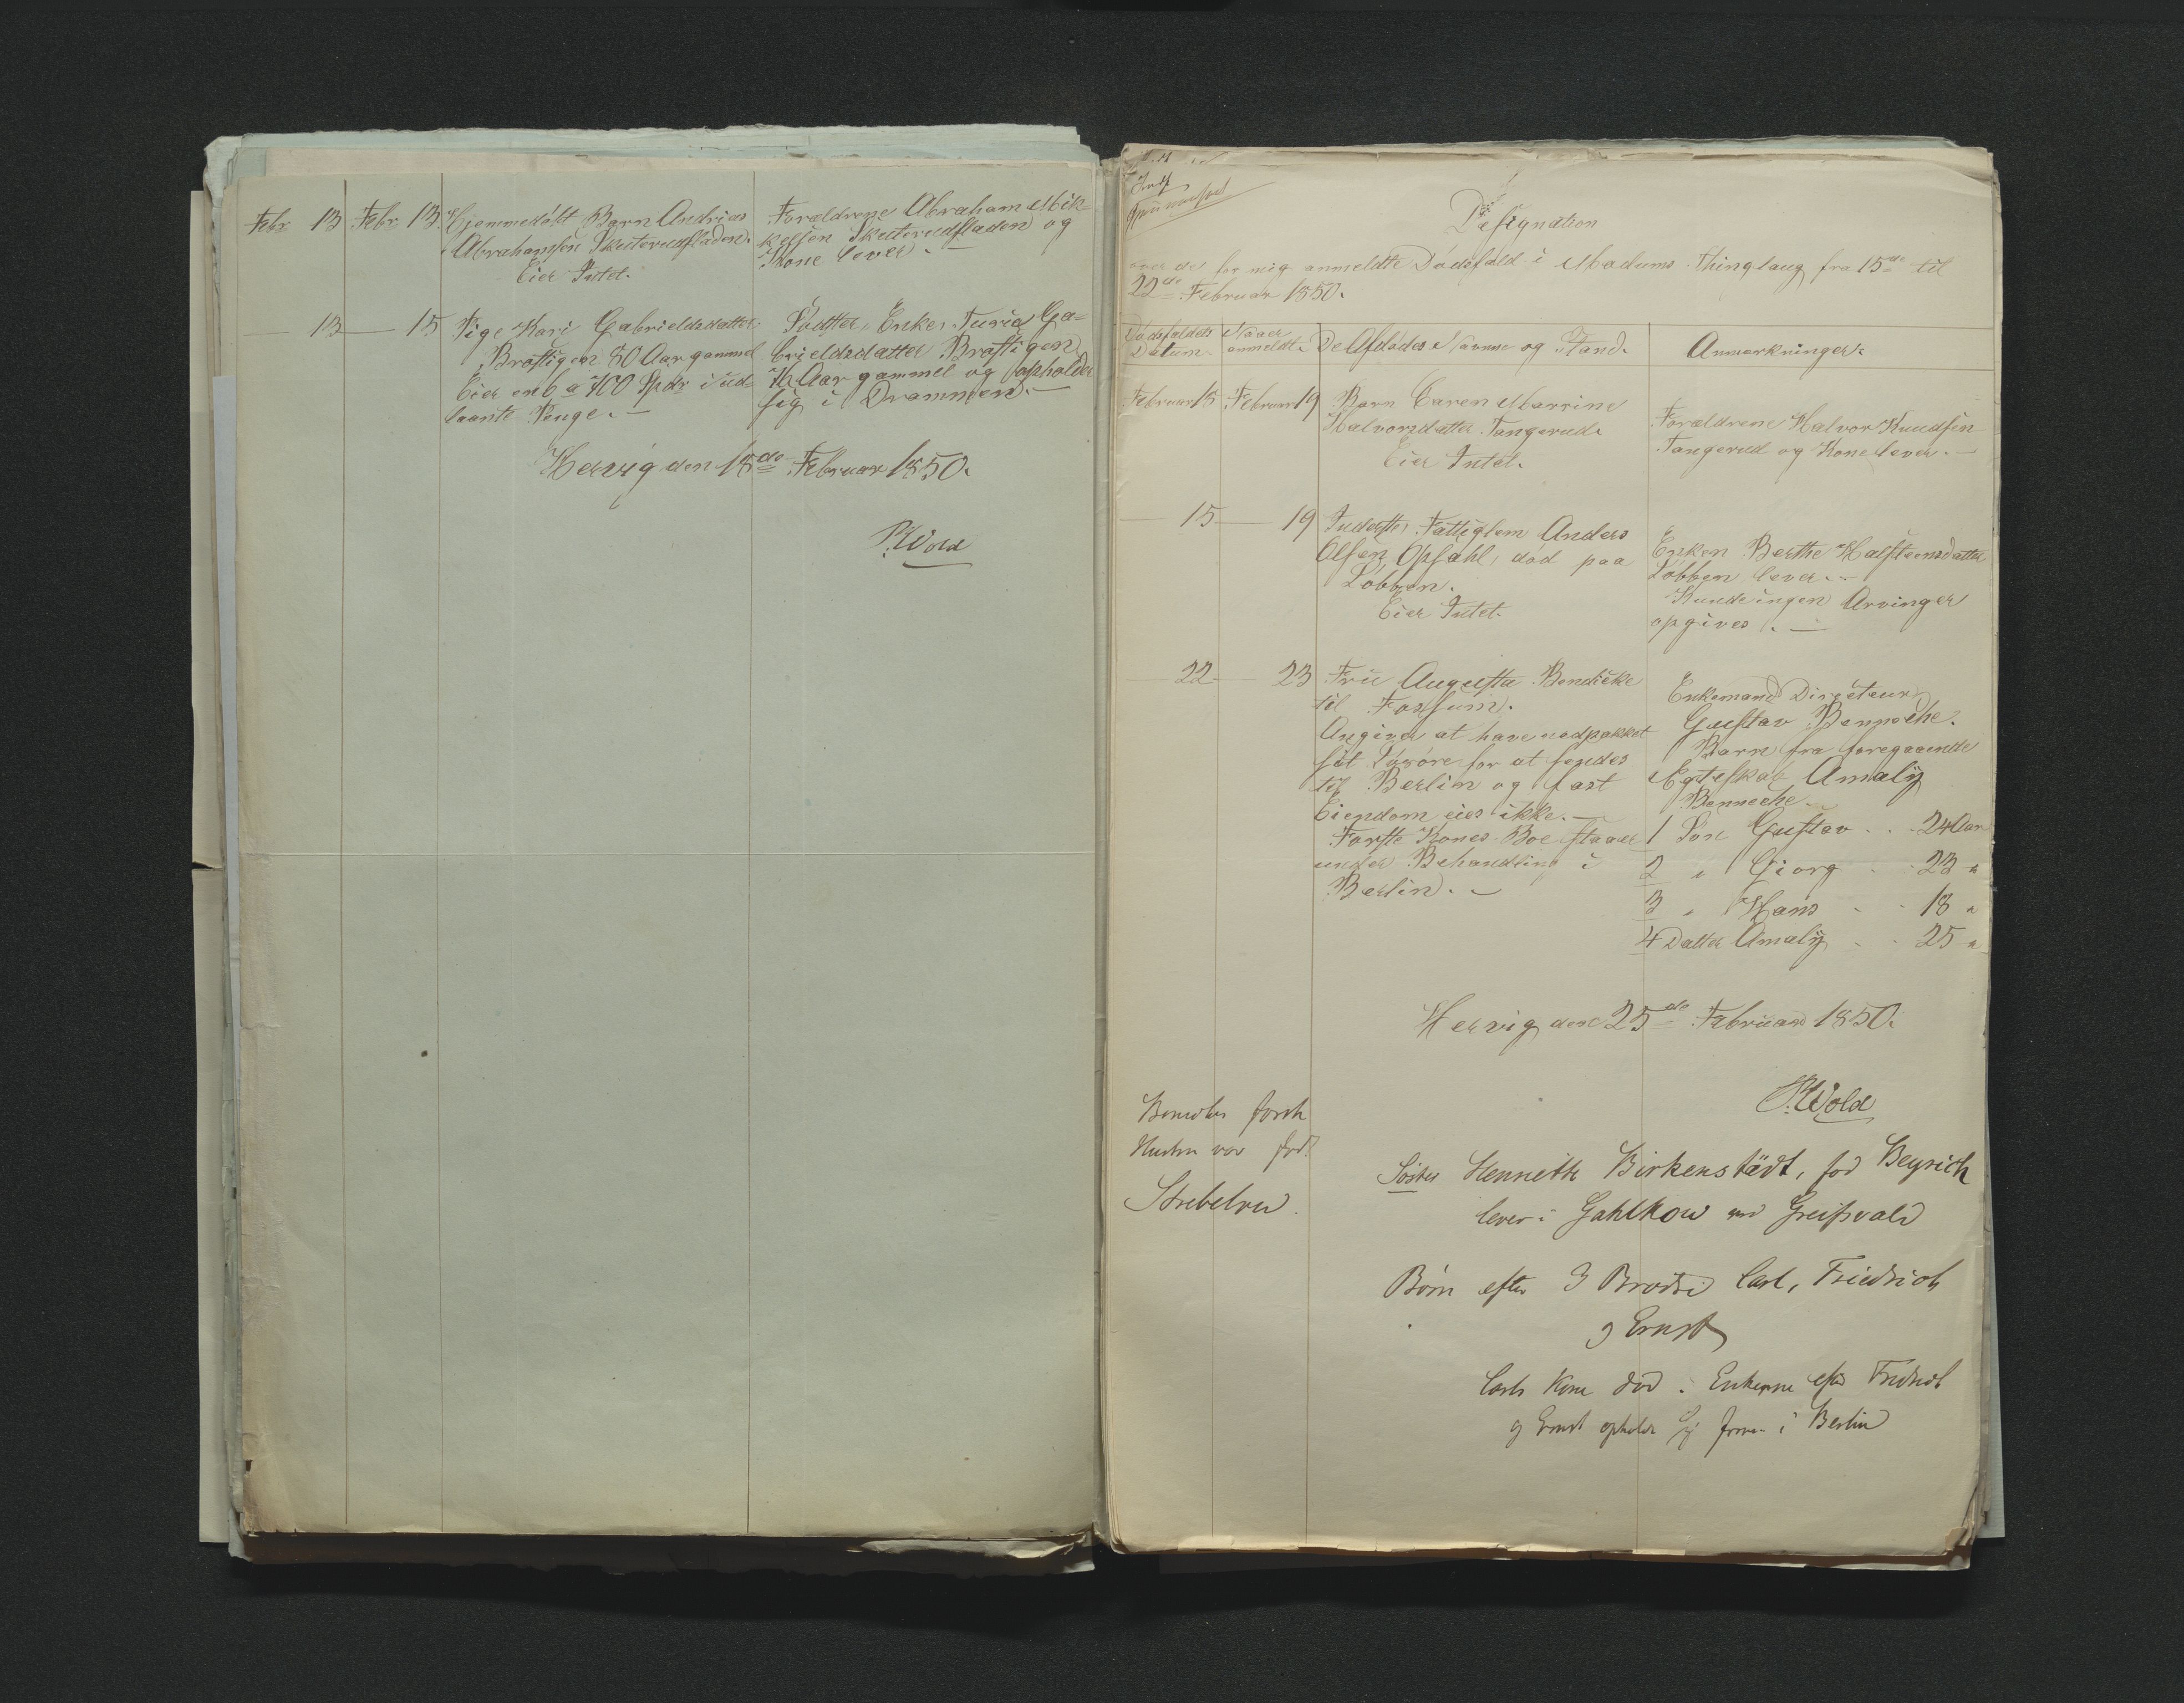 Febr 13 Febr 13. Hjemmedöbt Barn Andrias
Abrahamsen Skuterudfladen.
Eier Intet.
Forældrene Abraham Mik-
kelsen Skuterudfladen og
Kone lever. —
— 13 — 15 Pige Kari Gabrielsdatter
Bråstigen 80 Aar gammel
Eier en 6 a 700 Spdr i ud-
laante Penge. —
Södster, Enke, Turid Ga-
brieldsdatter Bråstigen
Aar gammel og opholder
sig i Drammen. —
Hervig den 18de Februar 1850.
Wold
Designation
over de for mig anmeldte Dödsfald i Modums Thinglaug fra 15de til
22de Februar 1850.
Dödsfaldets Datum
Naar anmeldt.
De Afdödes Navne og Stand.
Anmærkninger.
Februar 15 Februar 19 Barn Caren Marrine
Halvorsdatter Tangerud.
Eier Intet.
Forældrene Halvor Knudsen
Tangerud og Kone lever. —
— 15 — 19 Inderste, Fattiglem Anders
Olsen Opsahl, död paa
Löbben.
Eier Intet.
Enken Berthe Halsteensdatter
Löbben lever. —
Kunde ingen Arvinger
opgives. —
— 22 — 23 Frue Augusta Bendicke
til Fossum.
Angiver at have nedpakket
sit Lösöre for at sendes
til Berlin og fast
Eiendom eies ikke. —
Förste Kones Boe staaer
under Behandling i
Berlin. —
Enkemand Directeur
Gustav Benneche.
Barn fra foregaaende
Egteskab Amalij
Benneche.
1 Sön Gustav . . 24 Aar
2 " Giorg . . 23 "
3 " Hans . . 18 "
4 Datter Amalij . . 25 "
Hervig den 25de Februar 1850.
Wold
første
Hustru var født
Søster Henriette Birkenstädt, fød Beyrich
lever i Gahlkow ved Greifsvald
Børn efter 3 Brødre Carl, Friedrich
og Ernst
Carls Kone død. Enkerne efter Fridrich
og Ernst opholde sig i Berlin